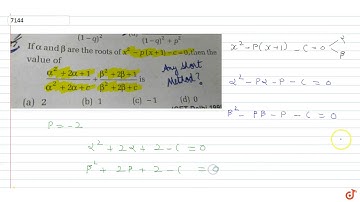 7144
(1-q)²
(1-q)²+p²
If α and β are the roots of x²-p(x+1)-c=0, then the
value of
α²+2α+1/α²+2α+c + β²+2β+1/β²+2β+c is
Any short
Method?
(a) 2 (b) 1 (c) -1 (d) 0
P = -2
α² + 2α + 2 - C = 0
β² + 2β + 2 - C = 0
x² - P(x+1) - C = 0 α β
α² - Pα - P - C = 0
β² - Pβ - P - C = 0